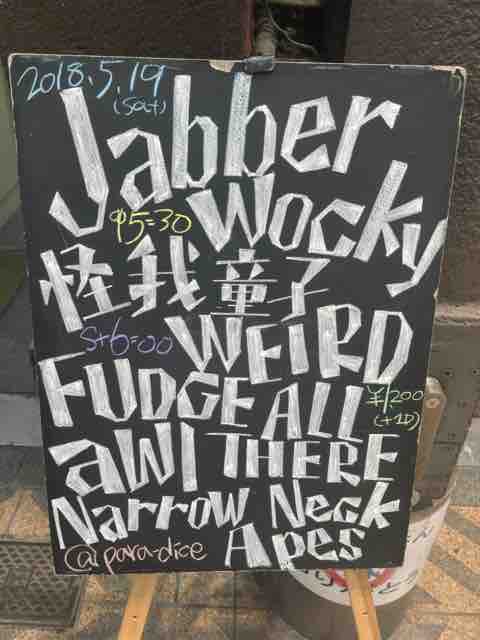 2018.5.19
(Sat)
Jabber
Wocky
op5=30
怪我童子
St6=00
WEIRD
FUDGE ALL
¥1200
(+1D)
AWI THERE
Narrow Neck
Apes
@para-dice